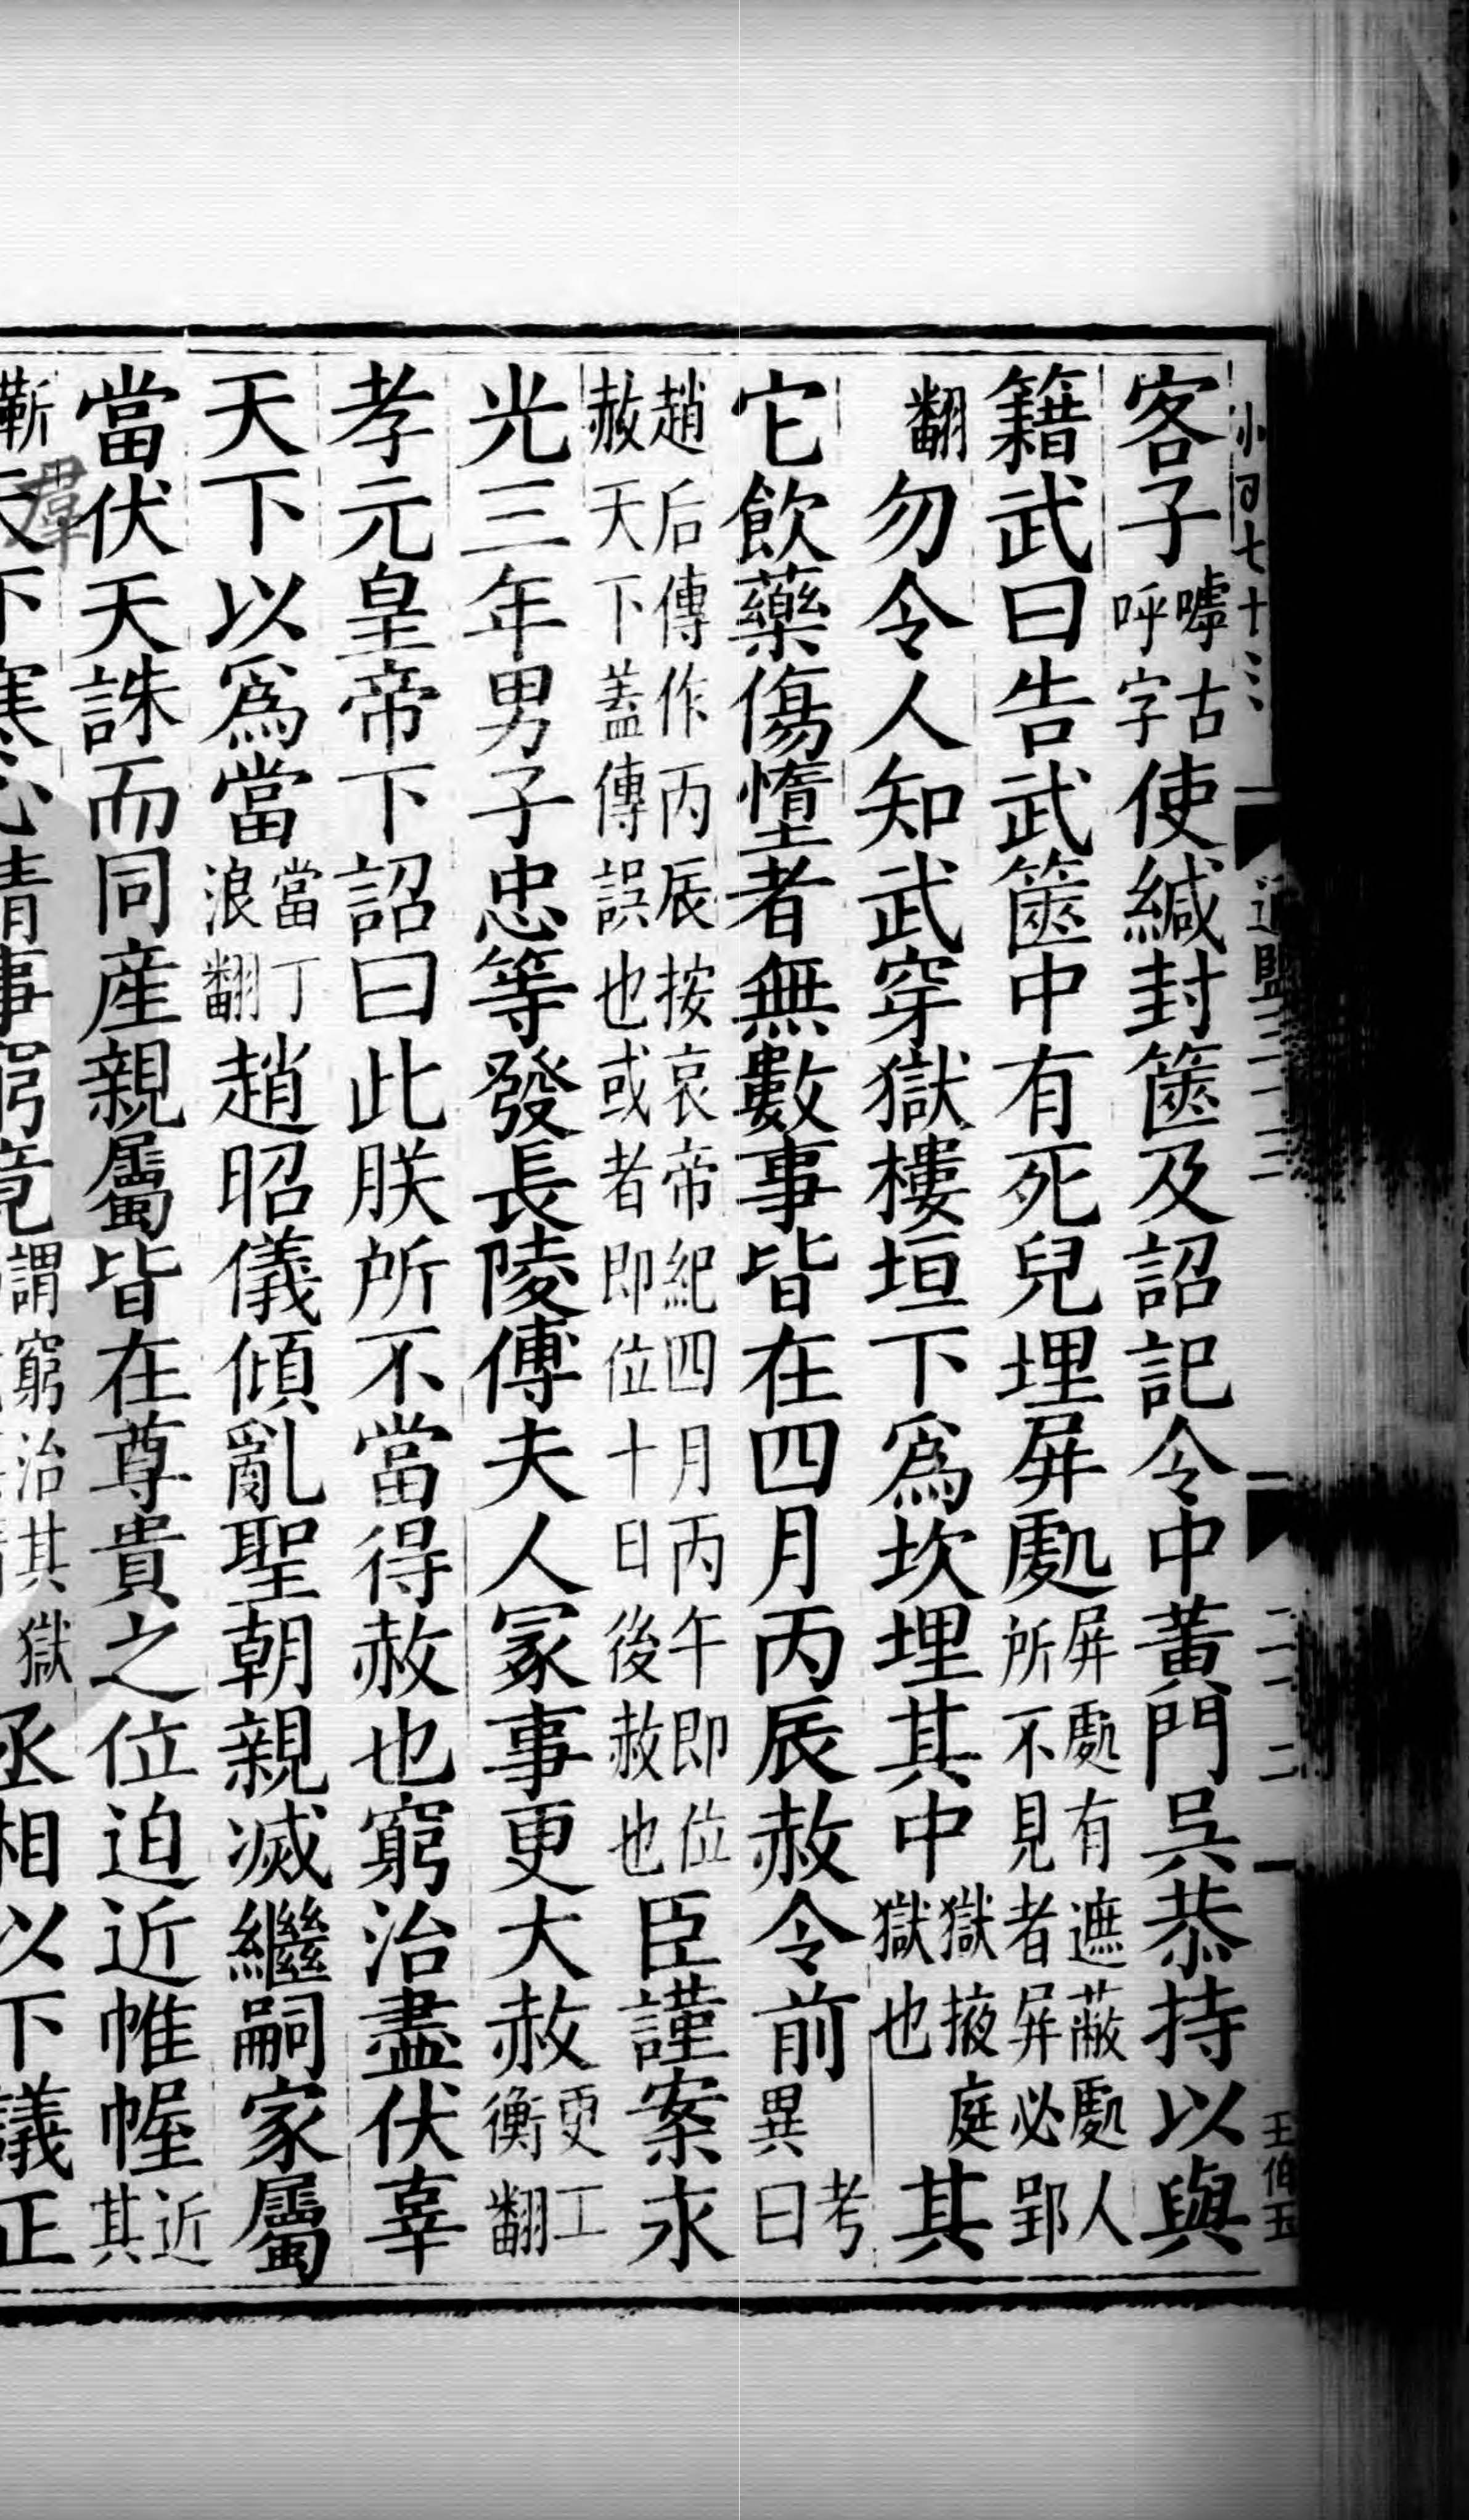 客子嘑古呼字使緘封篋及詔記令中黃門吳恭持以與
籍武曰告武篋中有死兒埋屏處屏處有遮蔽處人所不見者屏必郢
翻勿令人知武穿獄樓垣下爲坎埋其中獄掖庭獄也其
它飲藥傷墮者無數事皆在四月丙辰赦令前考異曰
趙后傳作丙辰按哀帝紀四月丙午即位赦天下蓋傳誤也或者即位十日後赦也臣謹案永
光三年男子忠等發長陵傅夫人冢事更大赦更工衡翻
孝元皇帝下詔曰此朕所不當得赦也窮治盡伏辜
天下以爲當當丁浪翻趙昭儀傾亂聖朝親滅繼嗣家屬
當伏天誅而同産親屬皆在尊貴之位迫近帷幄近其
靳天下寒心請事窮竟謂窮治其獄丞相以下議正
羣
王伯玉